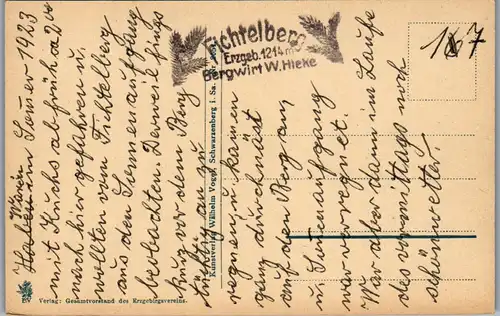 Waren im Sommer 1923
mit Kuchs ab früh 2 Uhr
nach hier gefahren u.
wollten vom Fichtelberg
aus den Sonnenaufgang
beobachten. Derweil fings
kurz vor dem Berg
tüchtig an zu
regnen, u. kamen
ganz durchnäst
auf den Berg an,
u. Sonnenaufgang
war verregnet.
War aber dann im Laufe
des vormittags noch
schönwetter.
Fichtelberg
Erzgeb. 1214 m
Bergwirt W. Hieke
167
Kunstverlag Wilhelm Vogel, Schwarzenberg i. Sa.
Verlag: Gesamtvorstand des Erzgebirgsvereins.